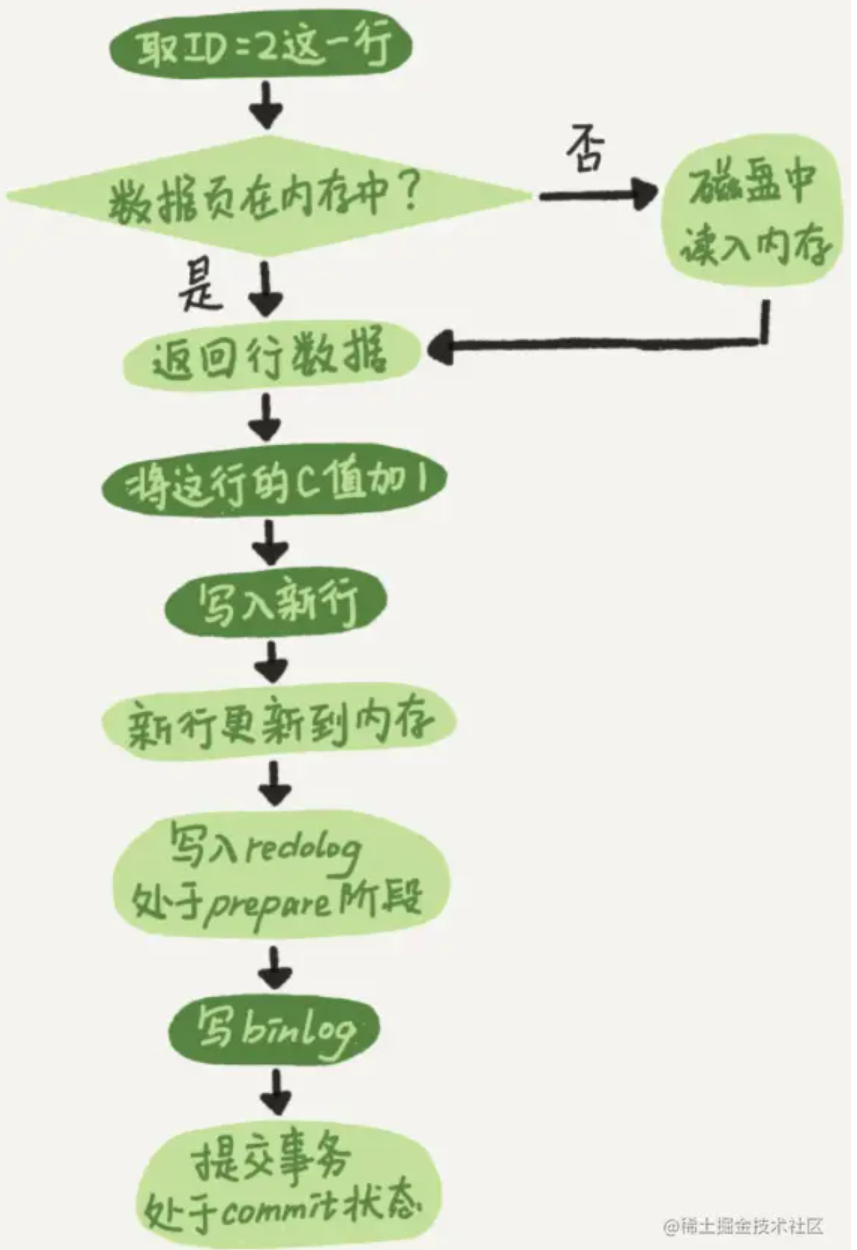 取ID=2这一行
数据页在内存中？
否
磁盘中
读入内存
是
返回行数据
将这行的C值加1
写入新行
新行更新到内存
写入redolog
处于prepare阶段
写binlog
提交事务
处于commit状态
@稀土掘金技术社区